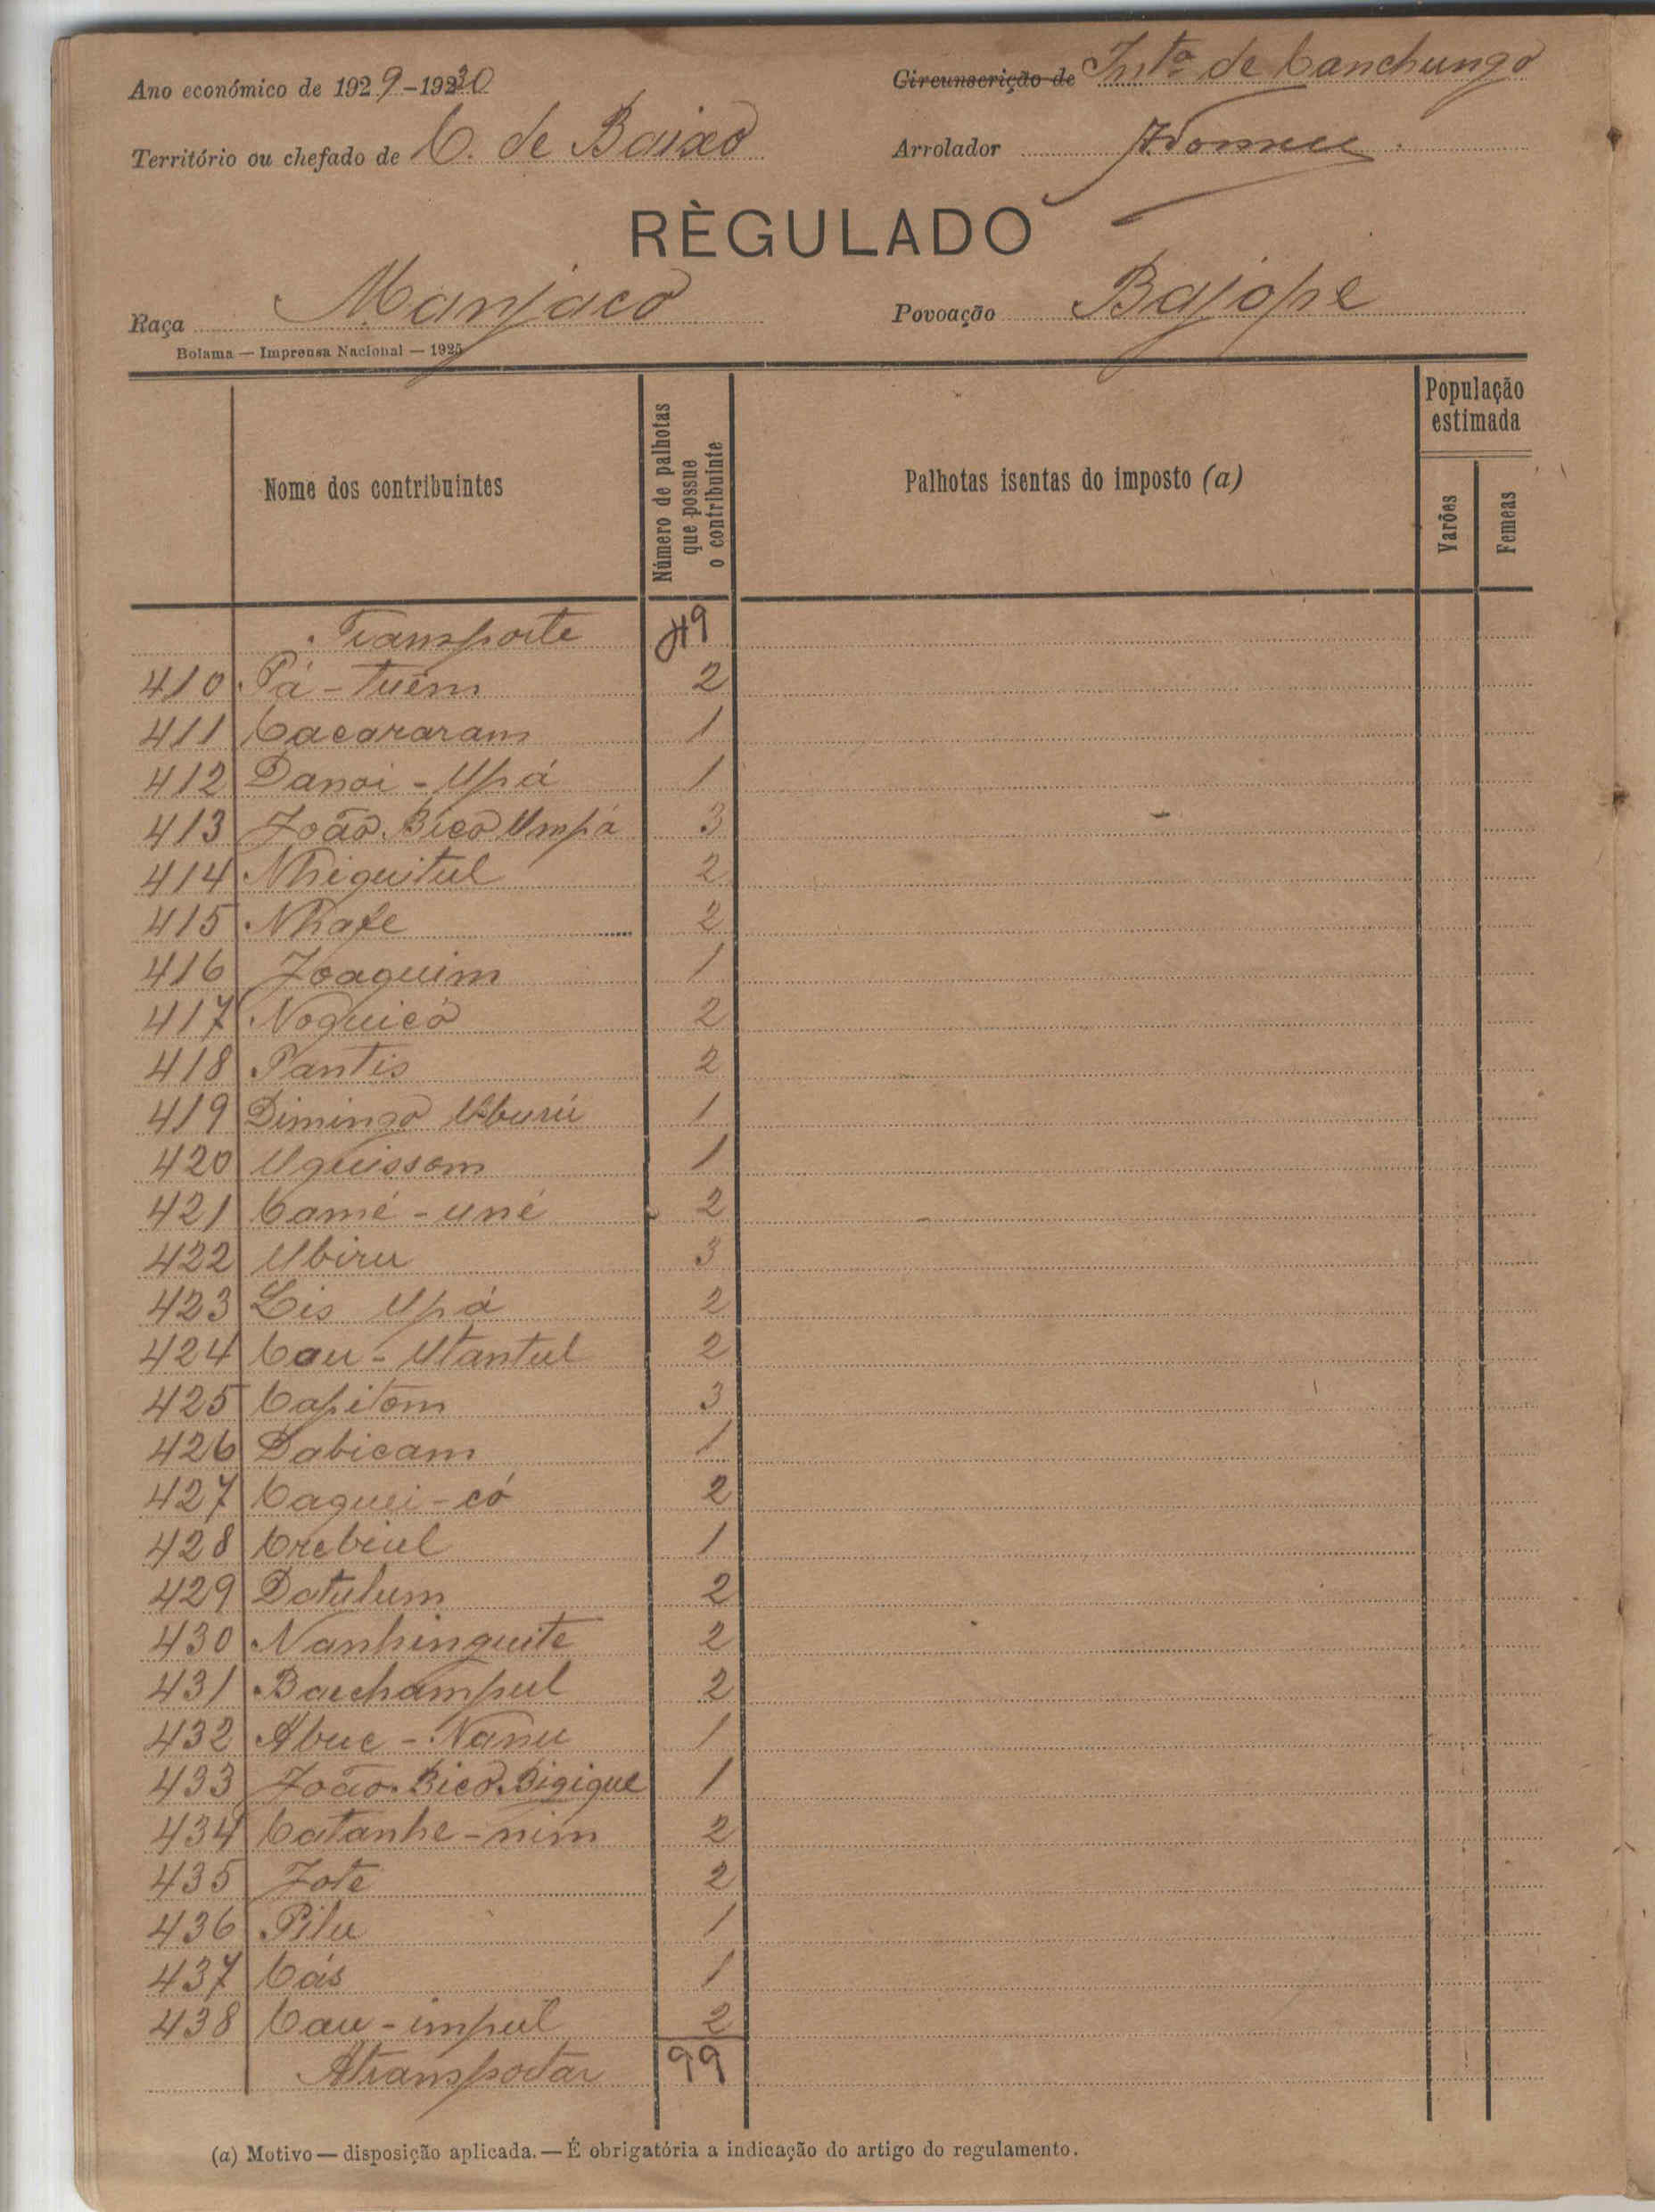 Ano económico de 1929-1930
Circunscrição de Int.ª de Canchungo
Território ou chefado de C. de Baixo
Arrolador
RÈGULADO
Raça Manjaco
Povoação Bajope
Bolama — Imprensa Nacional — 1925
Nome dos contribuintes
Número de palhotas que possue o contribuinte
Palhotas isentas do imposto (a)
População estimada
Varões
Femeas
Transporte 49
410 Pá-Tuém 2
411 Cacararam 1
412 Danoi-Upá 1
413 João Bico Umpá 3
414 Nhiguitul 2
415 Nhafe 2
416 Joaquim 1
417 Noquicó 2
418 Pantis 2
419 Dimingo Uburú 1
420 Uquissom 1
421 Camé-uné 2
422 Ubiru 3
423 Lis Upá 2
424 Cau-Utantul 2
425 Capitom 3
426 Dabicam 1
427 Caquei-có 2
428 Crebiul 1
429 Datulum 2
430 Nanhinguite 2
431 Bauchampul 2
432 Abuc-Nanu 1
433 João Bico Bigigue 1
434 Catanhe-nim 2
435 Jote 2
436 Pilu 1
437 Cás 1
438 Cau-impul 2
Atransportar 99
(a) Motivo — disposição aplicada. — É obrigatória a indicação do artigo do regulamento.